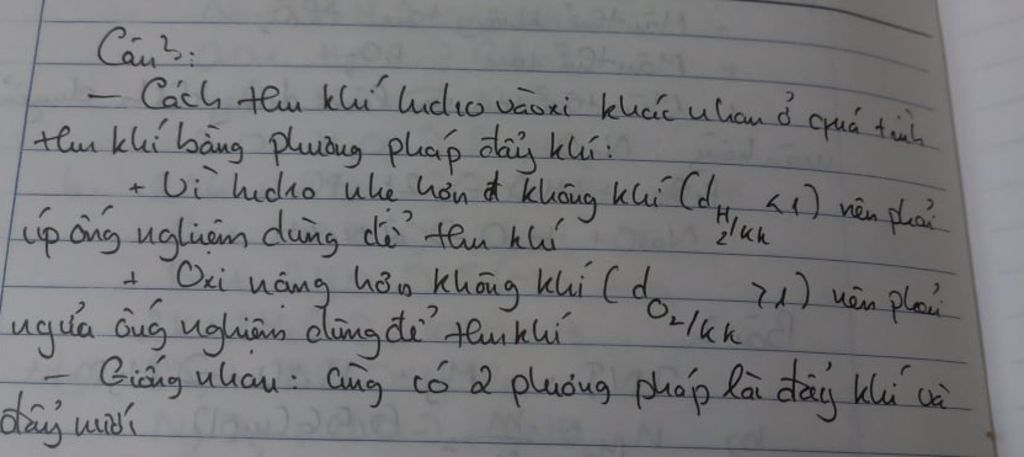 Câu 3:
– Cách thu khí hiđro và oxi khác nhau ở quá trình
thu khí bằng phương pháp đẩy khí:
+ Vì hiđro nhẹ hơn không khí (d H2/kk < 1) nên phải
úp ống nghiệm dùng để thu khí
+ Oxi nặng hơn không khí (d O2/kk > 1) nên phải
ngửa ống nghiệm dùng để thu khí
– Giống nhau: Cũng có 2 phương pháp là đẩy khí và
đẩy nước